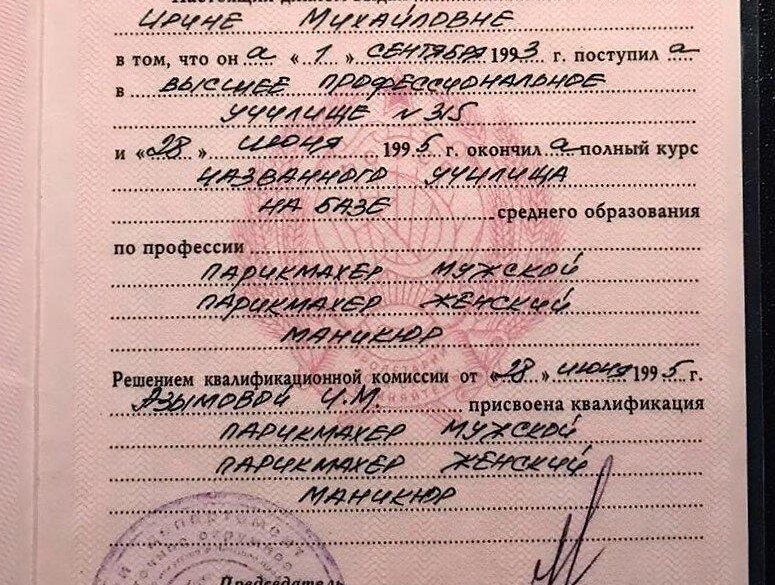 ИРИНЕ МИХАЙЛОВНЕ
в том, что он а « 1 » СЕНТЯБРЯ 1993 г. поступил а
в ВЫСШЕЕ ПРОФЕССИОНАЛЬНОЕ
УЧИЛИЩЕ N 315
и «28» ИЮНЯ 1995 г. окончил а полный курс
НАЗВАННОГО УЧИЛИЩА
НА БАЗЕ среднего образования
по профессии
ПАРИКМАХЕР МУЖСКОЙ
ПАРИКМАХЕР ЖЕНСКИЙ
МАНИКЮР
Решением квалификационной комиссии от «28» ИЮНЯ 1995 г.
АЗЫМОВОЙ И.М. присвоена квалификация
ПАРИКМАХЕР МУЖСКОЙ
ПАРИКМАХЕР ЖЕНСКИЙ
МАНИКЮР
Председатель